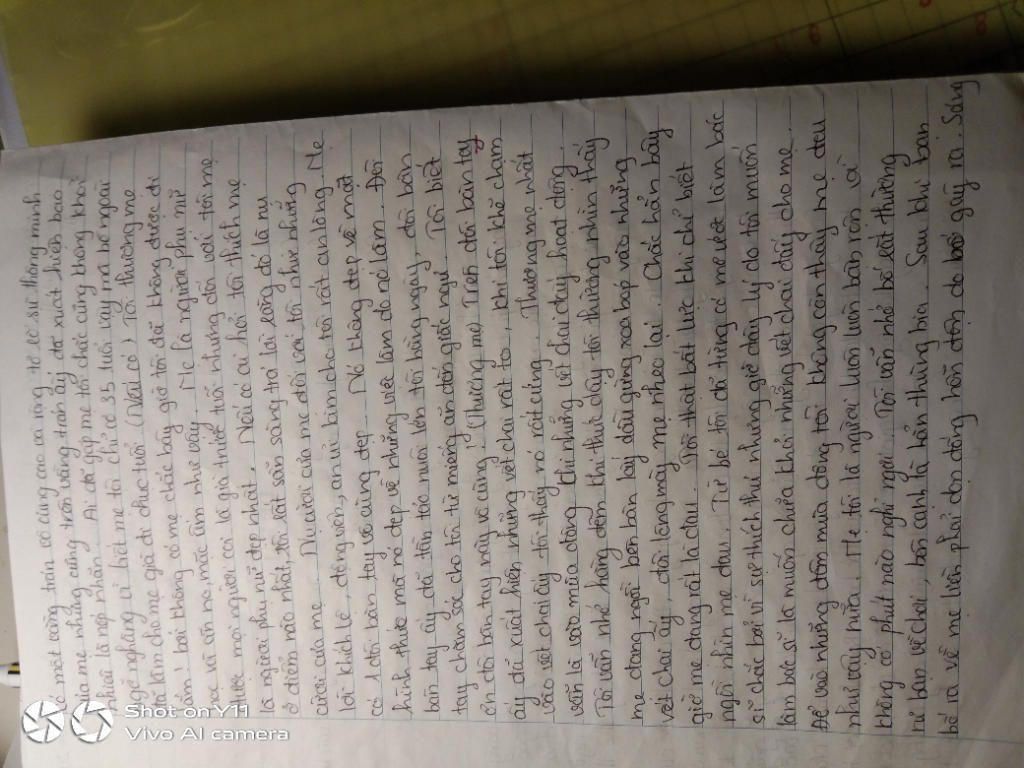 có một vầng trán vô cùng cao cả rộng tỏ rõ sự thông minh
của mẹ nhưng cũng trên vầng trán ấy đã xuất hiện bao
nhiêu là nếp nhăn. Ai đã gặp mẹ tôi chắc cũng không khỏi
ngỡ ngàng vì biết mẹ tôi chỉ có 35 tuổi vậy mà bề ngoài
phải làm cho mẹ già đi chục tuổi (Nếu có) Tôi thương mẹ
lắm! bởi không có mẹ chắc bây giờ tôi đã không được đi
học và ăn no mặc ấm như vậy. Mẹ là người phụ nữ
được mọi người coi là già trước tuổi nhưng đối với tôi mẹ
là người phụ nữ đẹp nhất. Nếu có ai hỏi tôi thích mẹ
ở điểm nào nhất, tôi rất sẵn sàng trả lời rằng đó là nụ
cười của mẹ. Nụ cười của mẹ đối với tôi như những
lời khích lệ, động viên, an ủi làm cho tôi rất an lòng. Mẹ
có 1 đôi bàn tay vô cùng đẹp. Nó không đẹp về mặt
hình thức mà nó đẹp về những việc làm do nó làm. Đôi
bàn tay ấy đã tần tảo nuôi lớn tôi hằng ngày, đôi bàn
tay chăm sóc cho tôi từ miếng ăn đến giấc ngủ. Tôi biết
ơn đôi bàn tay này vô cùng! (Thương mẹ) Trên đôi bàn tay
ấy đã xuất hiện những vết chai rất to, khi tôi khẽ chạm
vào vết chai ấy tôi thấy nó rất cứng. Thương mẹ nhất
vẫn là vào mùa đông khi những vết chai ấy hoạt động.
Tôi vẫn nhớ hằng đêm khi thức dậy tôi thường nhìn thấy
mẹ đang ngồi bên bàn lấy dầu gừng xoa bóp vào những
vết chai ấy, đôi lông mày mẹ nheo lại. Chắc hẳn bây
giờ mẹ đang rất là đau. Tôi thật bất lực khi chỉ biết
ngồi nhìn mẹ đau. Từ bé tôi đã từng có mơ ước làm bác
sĩ chắc bởi vì sự thích thú nhưng giờ đây lý do tôi muốn
làm bác sĩ là muốn chữa khỏi những vết chai ấy cho mẹ.
Để vào những đêm mùa đông tôi không còn thấy mẹ đau
như vậy nữa. Mẹ tôi là người luôn luôn bận rộn và
không có phút nào nghỉ ngơi. Tôi vẫn nhớ bố tôi thường
rủ bạn về chơi, bên cạnh là hẳn thùng bia. Sau khi bạn
bố ra về mẹ liền phải dọn đống hỗn độn do bố gây ra. Sáng
Shot on Y11
Vivo AI camera